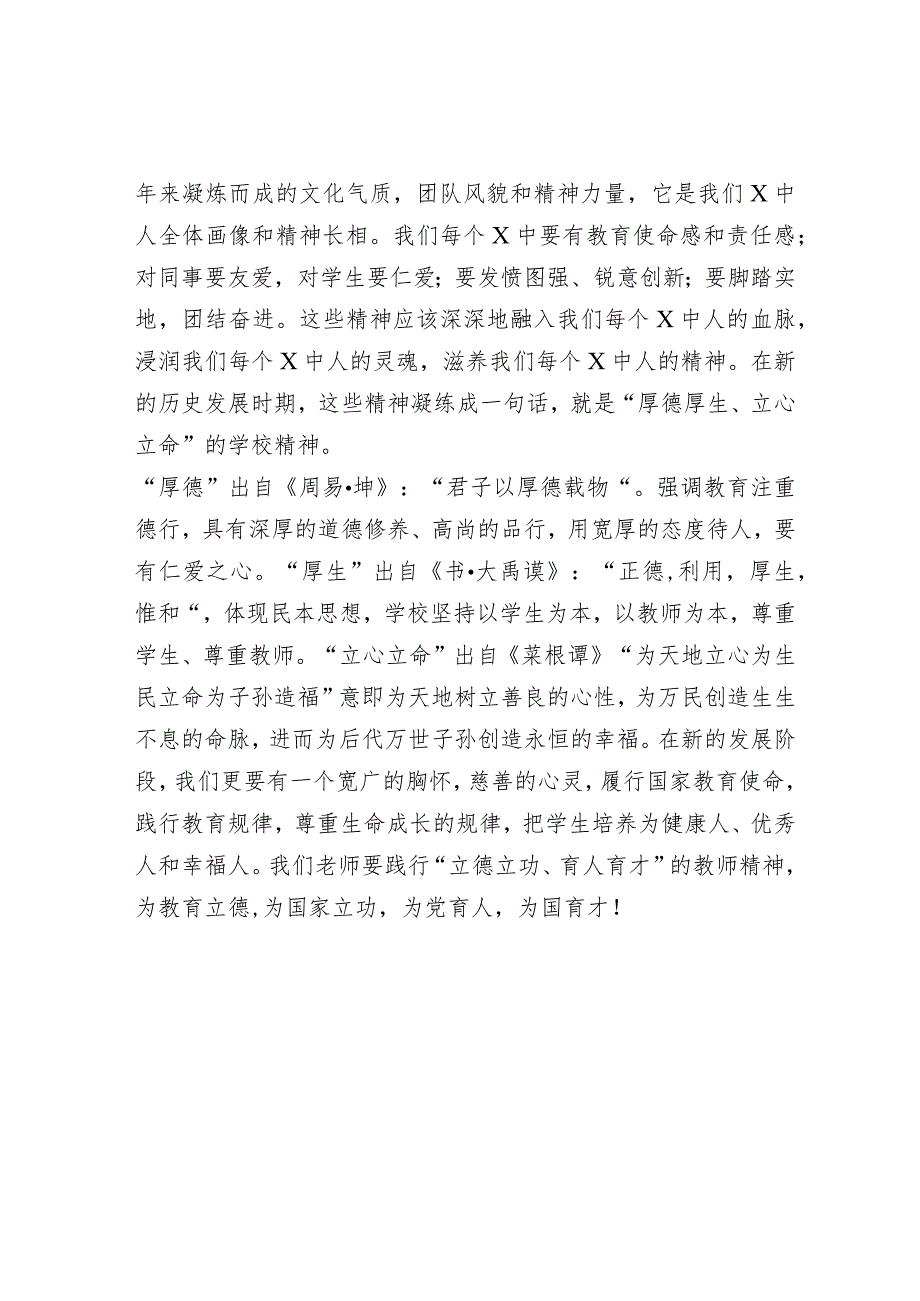 年来凝炼而成的文化气质，团队风貌和精神力量，它是我们 X 中
人全体画像和精神长相。我们每个 X 中要有教育使命感和责任感；
对同事要友爱，对学生要仁爱；要发愤图强、锐意创新；要脚踏实
地，团结奋进。这些精神应该深深地融入我们每个 X 中人的血脉，
浸润我们每个 X 中人的灵魂，滋养我们每个 X 中人的精神。在新
的历史发展时期，这些精神凝练成一句话，就是“厚德厚生、立心
立命”的学校精神。
“厚德”出自《周易•坤》：“君子以厚德载物“。强调教育注重
德行，具有深厚的道德修养、高尚的品行，用宽厚的态度待人，要
有仁爱之心。“厚生”出自《书•大禹谟》：“正德,利用，厚生，
惟和“，体现民本思想，学校坚持以学生为本，以教师为本，尊重
学生、尊重教师。“立心立命”出自《菜根谭》“为天地立心为生
民立命为子孙造福”意即为天地树立善良的心性，为万民创造生生
不息的命脉，进而为后代万世子孙创造永恒的幸福。在新的发展阶
段，我们更要有一个宽广的胸怀，慈善的心灵，履行国家教育使命，
践行教育规律，尊重生命成长的规律，把学生培养为健康人、优秀
人和幸福人。我们老师要践行“立德立功、育人育才”的教师精神，
为教育立德,为国家立功，为党育人，为国育才！